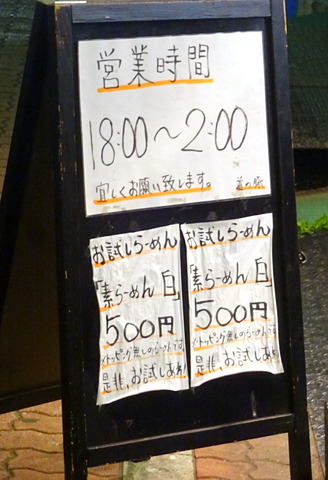 営業時間
18:00〜2:00
宜しくお願い致します。
お試しらーめん
「素らーめん 白」
500円
※トッピング無しのらーめんです。
是非、お試しあれ!
お試しらーめん
「素らーめん 白」
500円
※トッピング無しのらーめんです。
是非、お試しあれ!